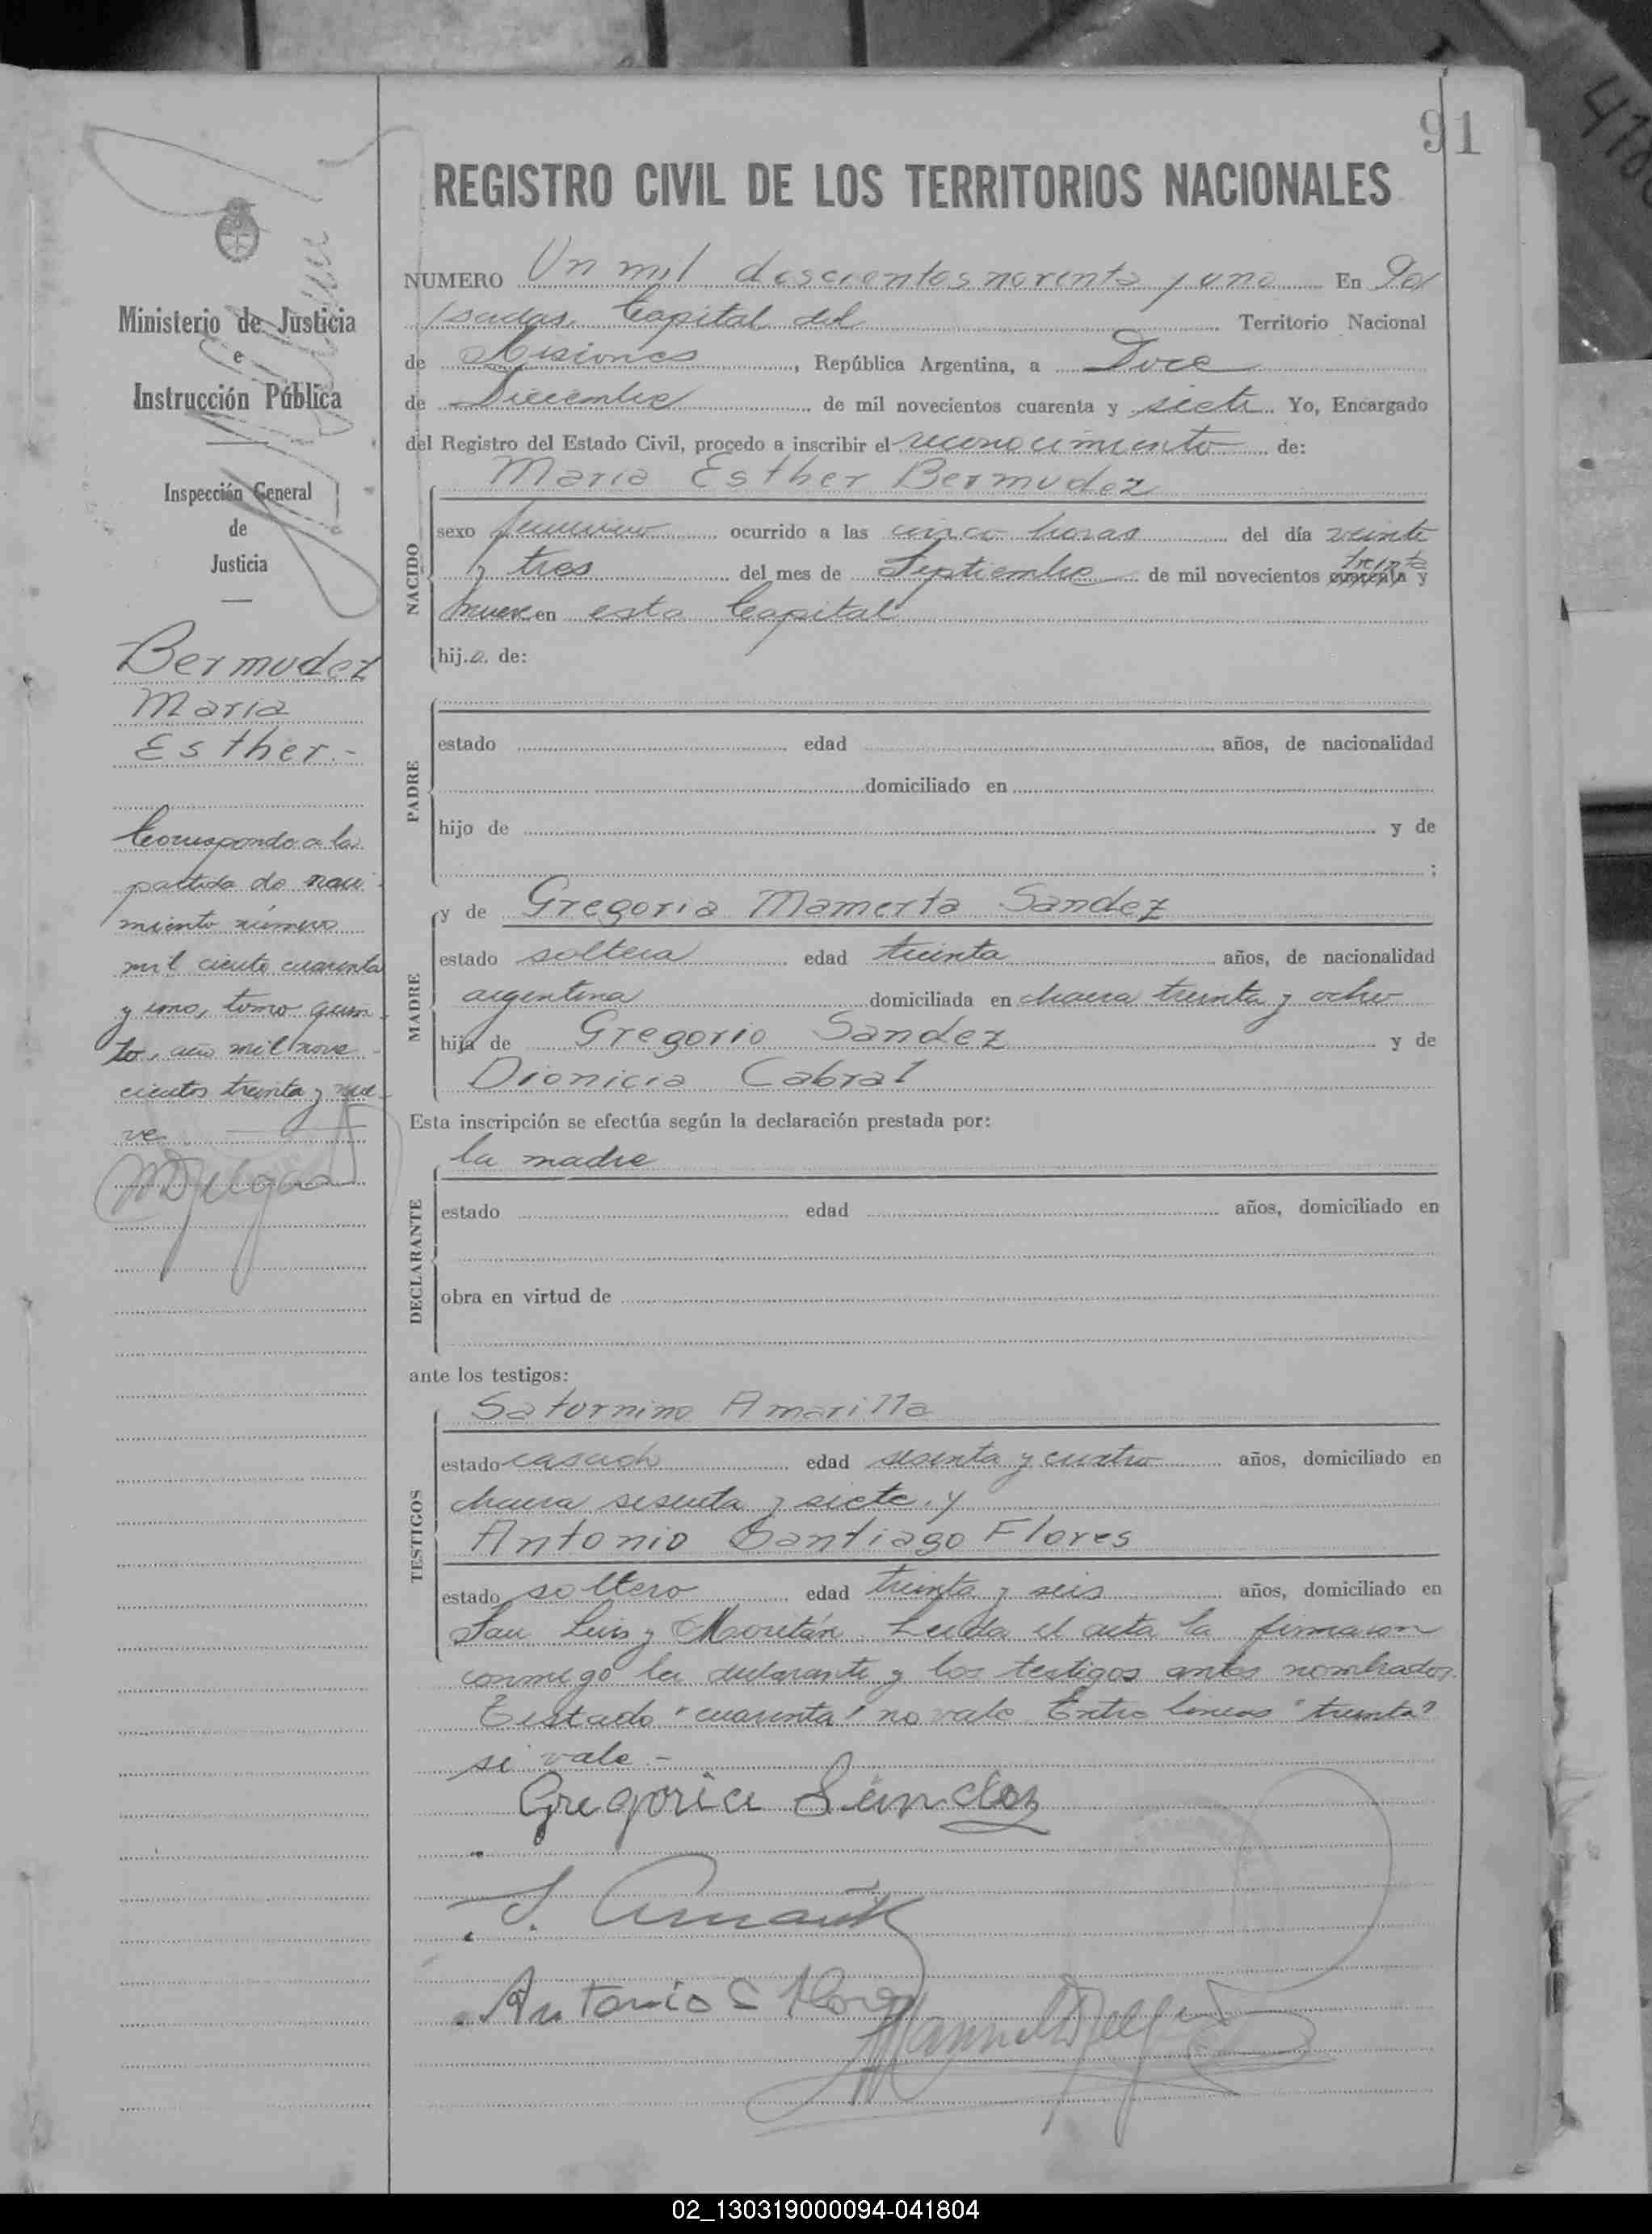 91
REGISTRO CIVIL DE LOS TERRITORIOS NACIONALES
Ministerio de Justicia
e
Instrucción Pública
Inspección General
de
Justicia
Bermudez
Maria
Esther.-
Corresponde a la
partida de naci
miento número
mil ciento cuarenta
y uno, tomo quin
to, año mil nove
cientos treinta y nue
ve
NUMERO Un mil doscientos noventa y uno En Po/
/sadas, Capital del Territorio Nacional
de Misiones, República Argentina, a Doce
de Diciembre de mil novecientos cuarenta y siete. Yo, Encargado
del Registro del Estado Civil, procedo a inscribir el reconocimiento de:
NACIDO
Maria Esther Bermudez
sexo femenino ocurrido a las cinco horas del día veinte
treinta
y tres del mes de Septiembre de mil novecientos cuarenta y
nueve en esta Capital
hij.a. de:
PADRE
estado edad años, de nacionalidad
domiciliado en
hijo de y de
;
MADRE
y de Gregoria Mamerta Sandez
estado soltera edad treinta años, de nacionalidad
argentina domiciliada en chacra treinta y ocho
hija de Gregorio Sandez y de
Dionicia Cabral
Esta inscripción se efectúa según la declaración prestada por:
DECLARANTE
la madre
estado edad años, domiciliado en
obra en virtud de
ante los testigos:
TESTIGOS
Saturnino Amarilla
estado casado edad sesenta y cuatro años, domiciliado en
chacra sesenta y siete. y
Antonio Santiago Flores
estado soltero edad treinta y seis años, domiciliado en
San Luis y Moritán. Leida el acta la firmaron
conmigo la declarante y los testigos antes nombrados.
Testado "cuarenta" no vale. Entre lineas "treinta"
si vale.-
Gregoria Sández
Antonio S Flores
02_130319000094-041804